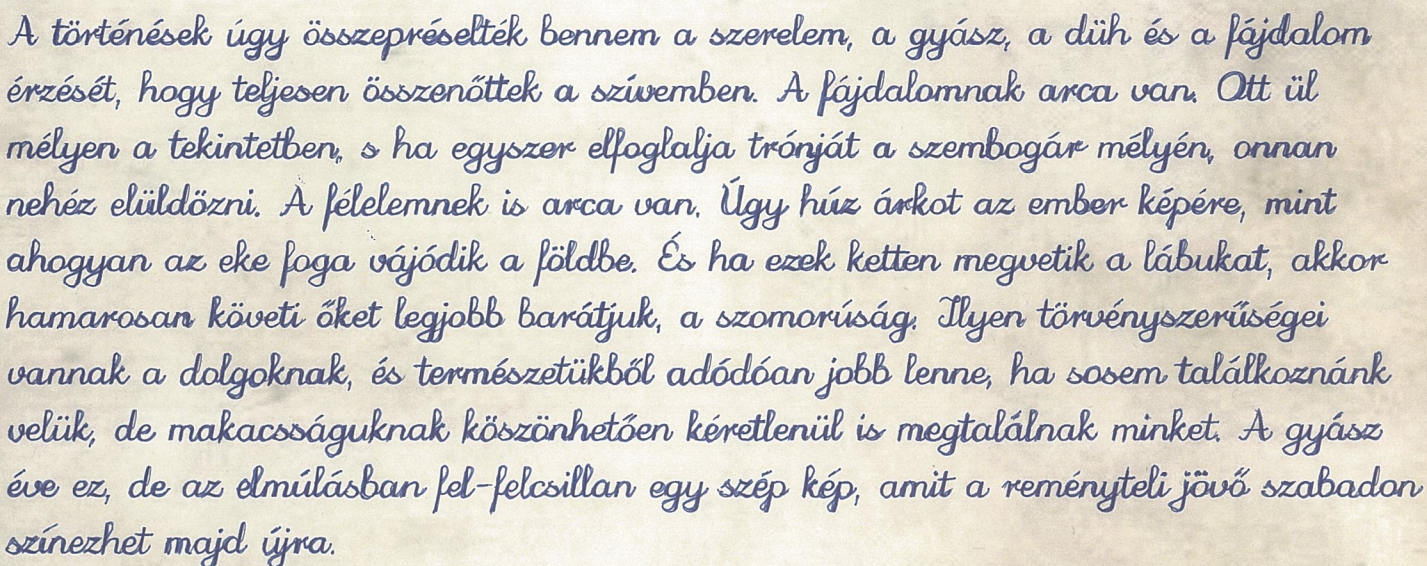 A történések úgy összepréselték bennem a szerelem, a gyász, a düh és a fájdalom
érzését, hogy teljesen összenőttek a szívemben. A fájdalomnak arca van. Ott ül
mélyen a tekintetben, s ha egyszer elfoglalja trónját a szembogár mélyén, onnan
nehéz elüldözni. A félelemnek is arca van. Úgy húz árkot az ember képére, mint
ahogyan az eke foga vájódik a földbe. És ha ezek ketten megvetik a lábukat, akkor
hamarosan követi őket legjobb barátjuk, a szomorúság. Ilyen törvényszerűségei
vannak a dolgoknak, és természetükből adódóan jobb lenne, ha sosem találkoznánk
velük, de makacsságuknak köszönhetően kéretlenül is megtalálnak minket. A gyász
éve ez, de az elmúlásban fel-felcsillan egy szép kép, amit a reményteli jövő szabadon
színezhet majd újra.